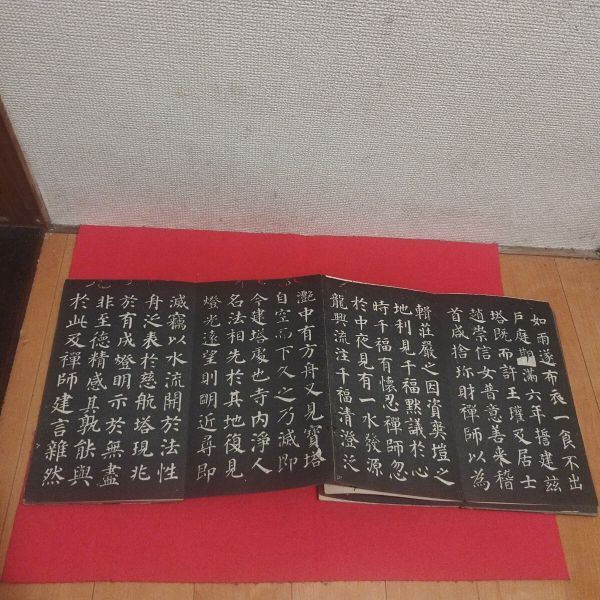 如雨遂布衣一食不出
戶庭期滿六年誓建茲
塔既而許王瓘及居士
趙崇信女普意善來稽
首咸捨珎財禪師以為
輯莊嚴之因資爽塏之
地利見千福默議於心
時千福有懷忍禪師忽
於中夜見有一水發源
龍興流注千福清澄泛
灩中有方舟又見寶塔
自空而下久之乃滅即
今建塔處也寺內淨人
名法相先於其地復見
燈光遠望則明近尋即
滅竊以水流開於法性
舟泛表於慈航塔現兆
於有成燈明示於無盡
非至德精感其孰能與
於此及禪師建言雜然